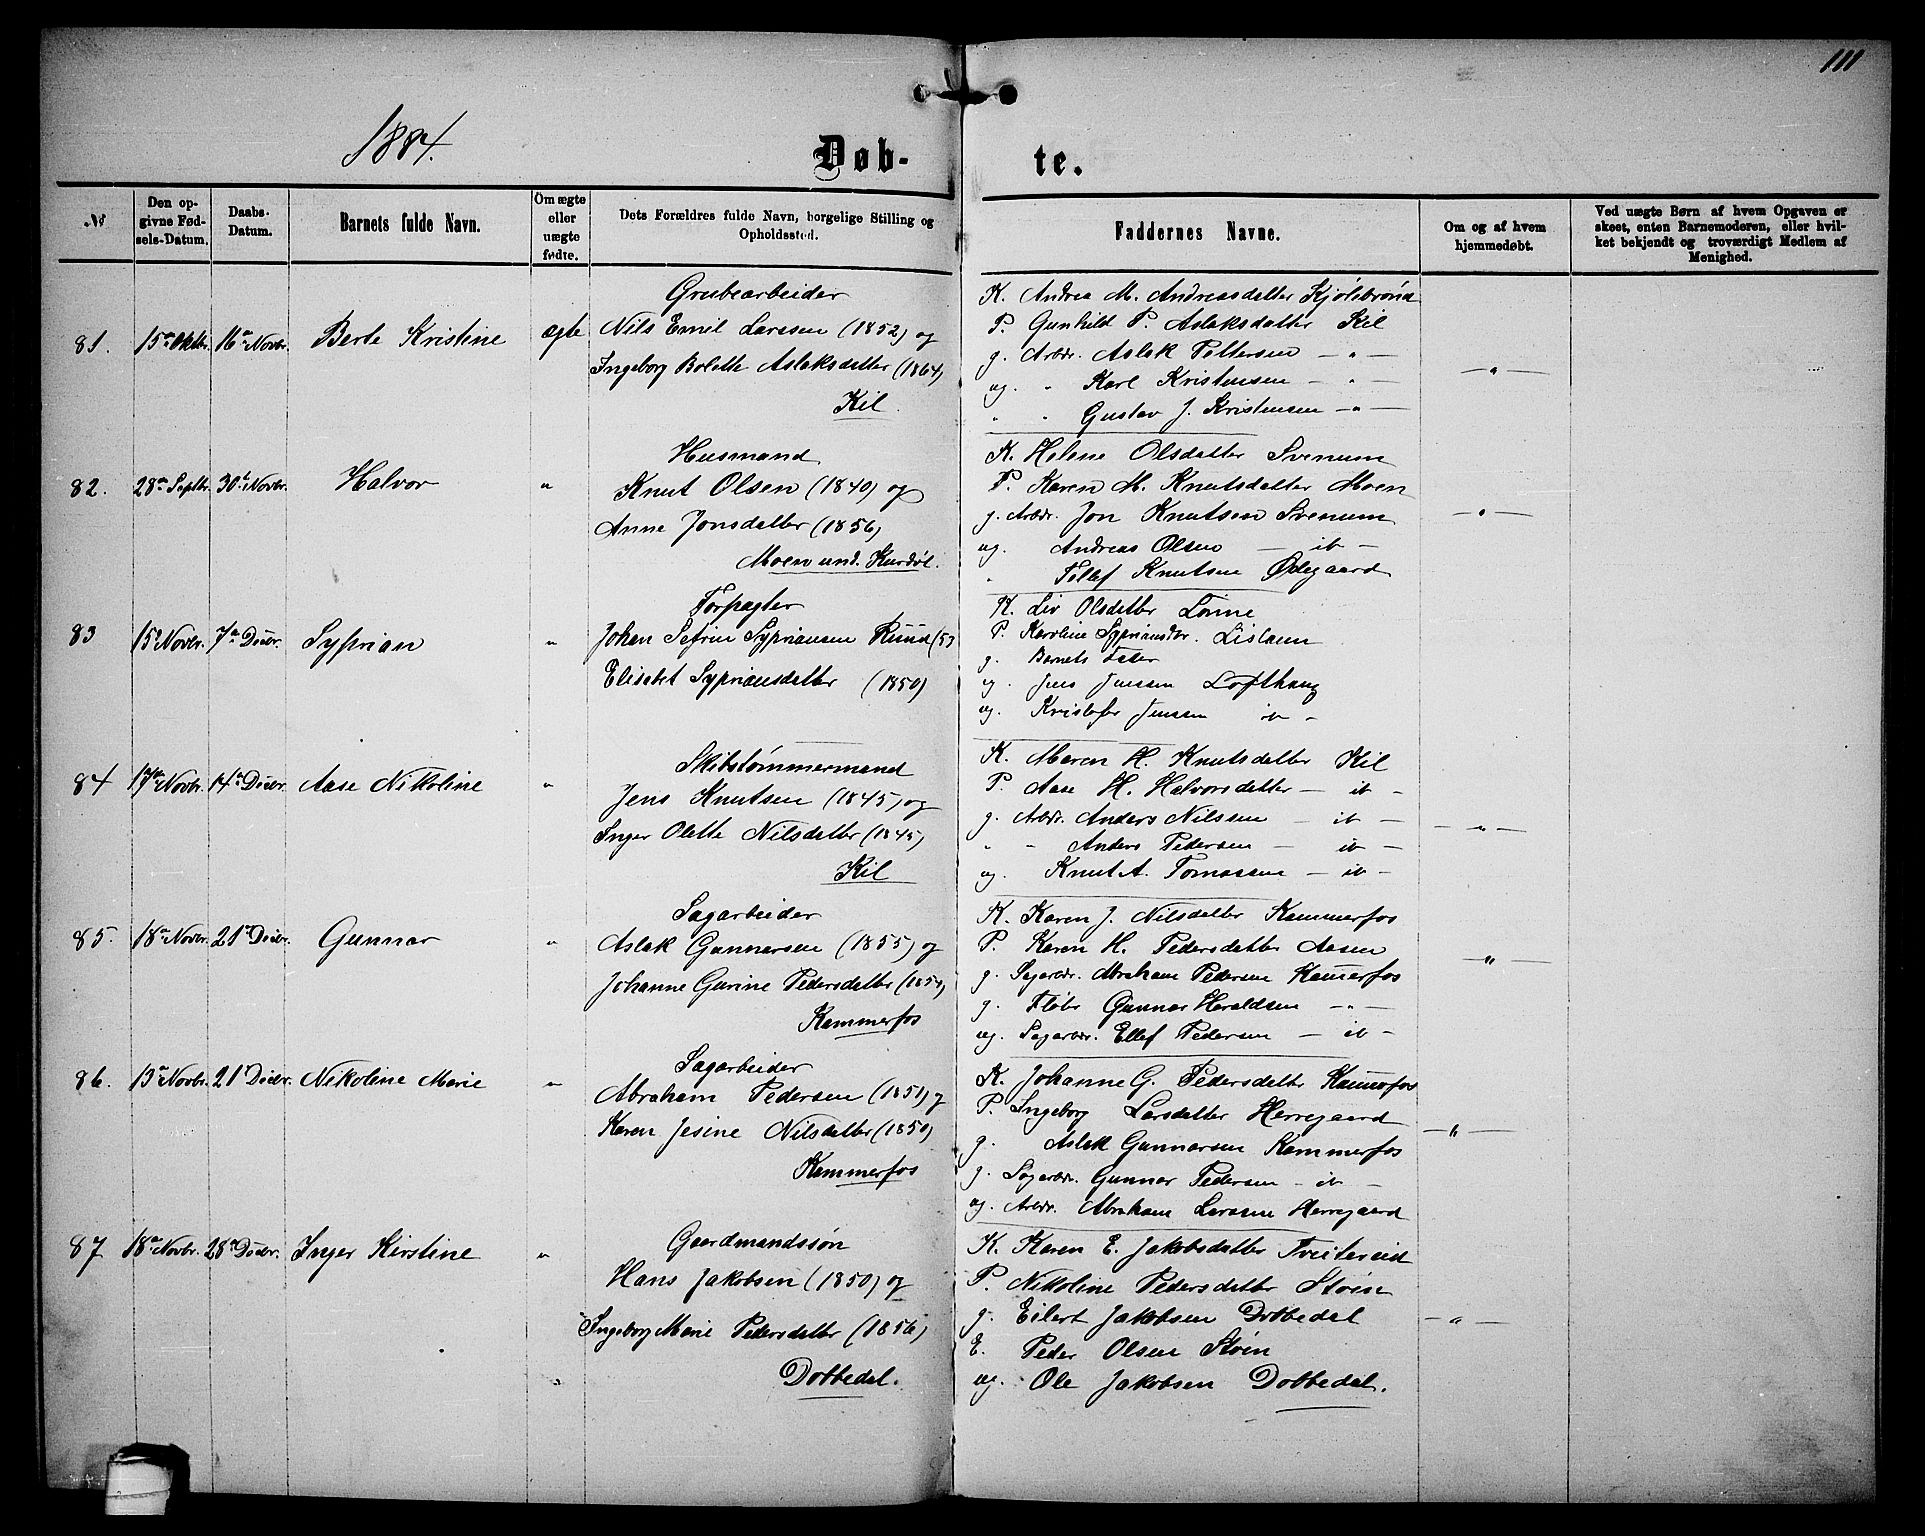 111
1884.
Døb-
te.
№
Den op-
givne Fød-
sels-Datum.
Daabs-
Datum.
Barnets fulde Navn.
Om ægte
eller
uægte
fødte.
Dets Forældres fulde Navn, borgelige Stilling og
Opholdssted.
Faddernes Navne.
Om og af hvem
hjemmedøbt.
Ved uægte Børn af hvem Opgaven er
skeet, enten Barnemoderen, eller hvil-
ket bekjendt og troværdigt Medlem af
Menighed.
81. 15de Oktbr. 16de Novbr. Berte Kristine ægte
Grubearbeider
Nils Emil Larssen (1852) og
Ingeborg Bolette Aslaksdatter (1864)
Kil.
K. Andrea M. Andreasdatter Kjølebrønd
P. Gunhild P. Aslaksdatter Kil
g. Arbdr. Aslak Pettersen — " —
og. " Karl Kristensen — " —
" " Gustav J. Kristensen — " —
— " —
82. 28de Septbr. 30te Novbr. Halvor "
Husmand
Knut Olsen (1840) og
Anne Jonsdatter (1856)
Moen und. Kurdøl.
K. Helene Olsdatter Svenum
P. Karen M. Knutsdatter Moen
g. Arbdr. Jon Knutsen Svenum
og. Andreas Olsen — it —
" Tellef Knutsen Ødegaard
— " —
83 15de Novbr. 7de Decbr. Syprian "
Forpagter
Johan Sefrin Sypriansen Ruud (53
Elisabet Sypriansdatter (1850)
K. Liv Olsdatter Lønne
P. Karoline Sypriansdtr. Lislaem
g. Barnets Fader
og. Jens Jenssen Lofthaug
og. Kristofer Jenssen it —
84 17de Novbr. 14de Decbr. Aase Nikoline "
Skibstømmermand
Jens Knutsen (1845) og
Inger Olette Nilsdatter (1845)
Kil
K. Maren H. Knutsdatter Kil
P. Aase H. Halvorsdatter — it —
g. Arbdr. Anders Nilssen — it —
" " Anders Pedersen — it —
og. Knut A. Tomassen — it —
— " —
85. 18de Novbr. 21de Decbr. Gunnar "
Sagarbeider
Aslak Gunnarsen (1855) og
Johanne Gurine Pedersdatter (1854)
Kammerfos
K. Karen J. Nilsdatter Kammerfos
P. Karen H. Pedersdatter Aasen
g. Sagarbdr. Abraham Pedersen Kammerfos
g. Fløbr Gunnar Haraldsen — " —
og. Sagarbdr. Ellef Pedersen — it —
— " —
86. 13de Novbr. 21de Decbr. Nikoline Marie "
Sagarbeider
Abraham Pedersen (1851) og
Karen Jesine Nilsdatter (1850)
Kammerfos
K. Johanne G. Pedersdatter Kammerfos
P. Ingeborg Larsdatter Herregaard
g. Aslak Gunnarsen Kammerfos
g. Sagarbdr. Gunnar Pedersen — it —
og. Arbdr. Abraham Larssen Herregaard
— " —
87 18de Novbr. 28de Decbr. Inger Kirstine "
Gaardmandssøn
Hans Jakobsen (1850) og
Ingeborg Marie Pedersdatter (1856)
Dobbedal.
K. Karen E. Jakobsdatter Tveitereid
P. Nikoline Pedersdatter Støin
g. Eilert Jakobsen Dobbedal
E. Peder Olsen Støin
og. Ole Jakobsen Dobbedal.
— " —